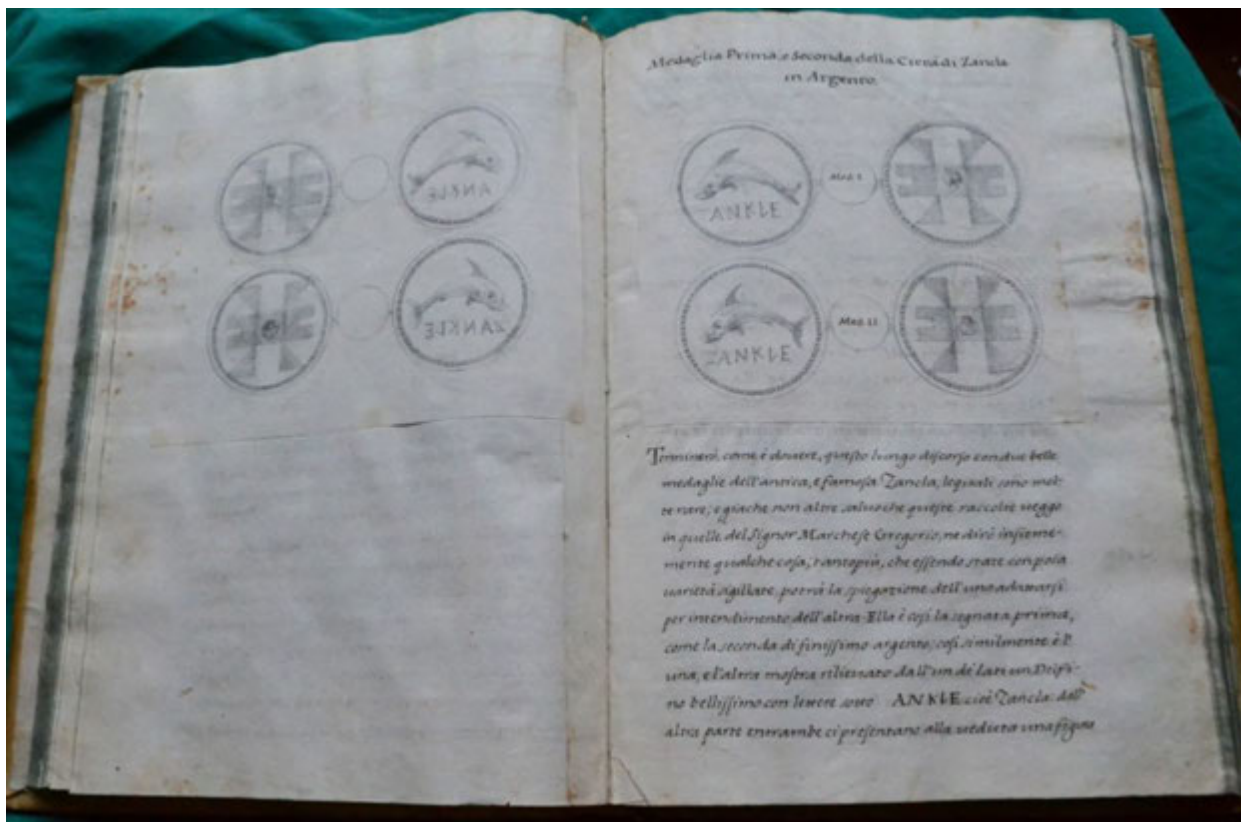 ANKLE
ZANKLE
Medaglia Prima, e Seconda della Città di Zancla
in Argento.
Med. I
ANKLE
Med. II
ZANKLE
Terminerò, come è douere, questo lungo discorso con due belle
medaglie dell'antica, e famosa Zancla, lequali sono mol-
te rare; e giache non altre saluoche queste raccolte ueggo
in quelle del Signor Marchese Gregorio, ne dirò insieme-
mente qualche cosa, tantopiù, che essendo state con poca
uarietà sigillate, potrà la spiegazione dell'una adattarsi
per intendimento dell'altra. Ella è così la segnata prima,
come la seconda di finissimo argento; così similmente è l'
una, e l'altra mostra rilieuato dall'un de' lati un Delfi-
no bellissimo con lettere sotto ANKLE cioè Zancla: dall'
altra parte entrambe ci presentano alla ueduta una figura